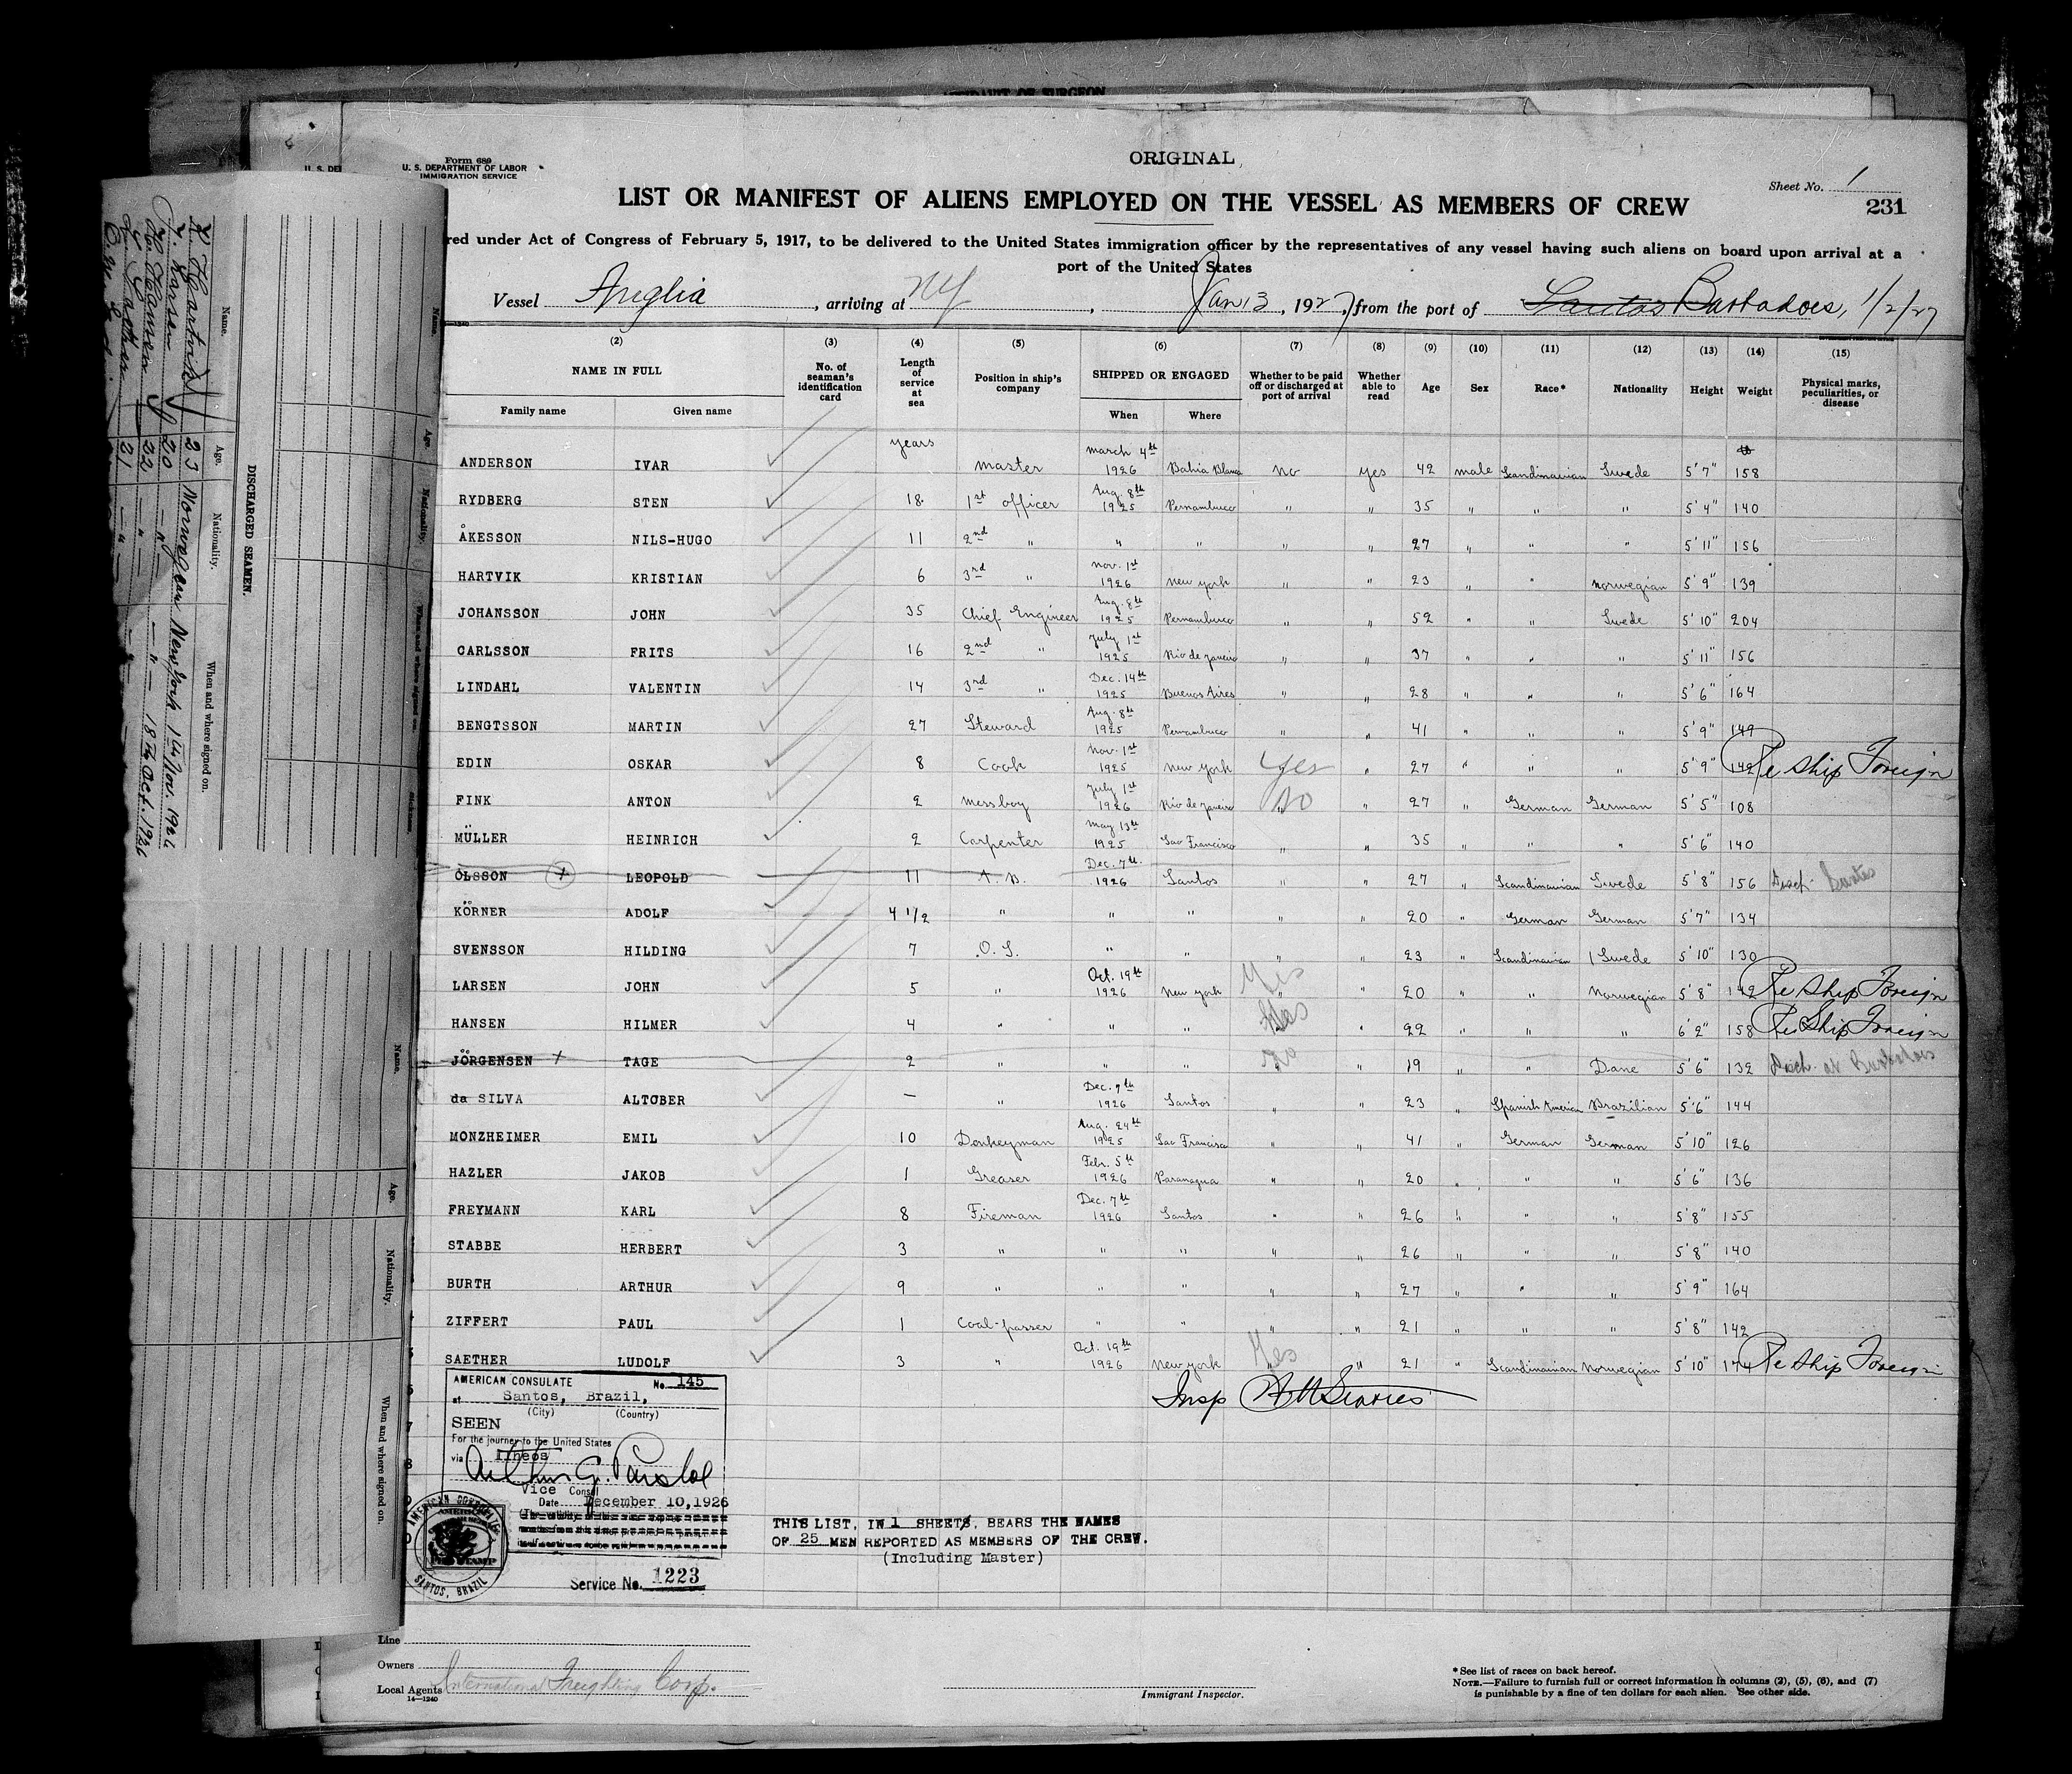 AFFIDAVIT OF SURGEON
ORIGINAL
Form 689
U. S. DEPARTMENT OF LABOR
IMMIGRATION SERVICE
U. S. DEP
Sheet No. 1
LIST OR MANIFEST OF ALIENS EMPLOYED ON THE VESSEL AS MEMBERS OF CREW
231
red under Act of Congress of February 5, 1917, to be delivered to the United States immigration officer by the representatives of any vessel having such aliens on board upon arrival at a
port of the United States
Vessel Anglia, arriving at NY, Jan 3, 1927, from the port of Santos Barbadoes, 1/2/27
(2) (3) (4) (5) (6) (7) (8) (9) (10) (11) (12) (13) (14) (15)
NAME IN FULL No. of seaman's identification card Length of service at sea Position in ship's company SHIPPED OR ENGAGED Whether to be paid off or discharged at port of arrival Whether able to read Age Sex Race* Nationality Height Weight Physical marks, peculiarities, or disease
Family name Given name When Where
years
ANDERSON IVAR master march 4th 1926 Bahia Blanca no yes 42 male Scandinavian Swede 5'7" 158
RYDBERG STEN 18 1st officer Aug. 8th 1925 Pernambuco " " 35 " " " 5'4" 140
ÅKESSON NILS-HUGO 11 2nd " " " " " 27 " " " 5'11" 156
HARTVIK KRISTIAN 6 3rd " nov. 1st 1926 new york " " 23 " " norwegian 5'9" 139
JOHANSSON JOHN 35 Chief Engineer Aug. 8th 1925 Pernambuco " " 52 " " Swede 5'10" 204
CARLSSON FRITS 16 2nd " July 1st 1925 Rio de Janeiro " " 37 " " " 5'11" 156
LINDAHL VALENTIN 14 3rd " Dec. 14th 1925 Buenos Aires " " 28 " " " 5'6" 164
BENGTSSON MARTIN 27 Steward Aug. 8th 1925 Pernambuco " " 41 " " " 5'9" 149
EDIN OSKAR 8 Cook nov. 1st 1925 new york Yes " 27 " " " 5'9" 142 Re Ship Foreign
FINK ANTON 2 messboy July 1st 1926 Rio de Janeiro No " 27 " German German 5'5" 108
MÜLLER HEINRICH 2 Carpenter may 13th 1925 Sao Francisco " " 35 " " " 5'6" 140
OLSSON + LEOPOLD 11 A.B. Dec. 7th 1926 Santos " " 27 " Scandinavian Swede 5'8" 156 Disch. Santos
KÖRNER ADOLF 4 1/2 " " " " " 20 " German German 5'7" 134
SVENSSON HILDING 7 O.S. " " " " 23 " Scandinavian Swede 5'10" 130
LARSEN JOHN 5 " Oct. 19th 1926 new york Yes " 20 " " norwegian 5'8" 142 Re Ship Foreign
HANSEN HILMER 4 " " " Yes " 22 " " " 6'2" 158 Re Ship Foreign
JÖRGENSEN + TAGE 2 " " " no " 19 " " Dane 5'6" 132 Disch. at Barbadoes
da SILVA ALTOBER — " Dec. 9th 1926 Santos " " 23 " Spanish American Brazilian 5'6" 144
MONZHEIMER EMIL 10 Donkeyman Aug. 24th 1925 Sao Francisco " " 41 " German German 5'10" 126
HAZLER JAKOB 1 Greaser Febr. 5th 1926 Paranagua " " 20 " " " 5'6" 136
FREYMANN KARL 8 Fireman Dec. 7th 1926 Santos " " 26 " " " 5'8" 155
STABBE HERBERT 3 " " " " " 26 " " " 5'8" 140
BURTH ARTHUR 9 " " " " " 27 " " " 5'9" 164
ZIFFERT PAUL 1 Coal-passer " " " " 21 " " " 5'8" 142
SAETHER LUDOLF 3 " Oct. 19th 1926 New york Yes " 21 " Scandinavian norwegian 5'10" 174 Re Ship Foreign
Insp
AMERICAN CONSULATE No. 145
at Santos, Brazil,
(City) (Country)
SEEN
For the journey to the United States
via Ilheos
Arthur G.
Vice Consul
Date December 10, 1926
AMERICAN
SANTOS, BRAZIL
Service No. 1223
THIS LIST, IN 1 SHEETS, BEARS THE NAMES
OF 25 MEN REPORTED AS MEMBERS OF THE CREW.
(Including Master)
Line
Owners
Local Agents International Freighting Corp.
14—1240
Immigrant Inspector.
*See list of races on back hereof.
NOTE.—Failure to furnish full or correct information in columns (2), (5), (6), and (7)
is punishable by a fine of ten dollars for each alien. See other side.
DISCHARGED SEAMEN.
Name. Age. Nationality. When and where signed on.
K. Hartvik 23 Norwegian New York 1st Nov. 1926
J. Larsen 20 — " —
H. Hansen 22 — " — — " — 18th Oct. 1926
L. Saether 21 — " — — " —
Name. Age. Nationality. When and where signed on.
Name. Age. Nationality. When and where signed on.